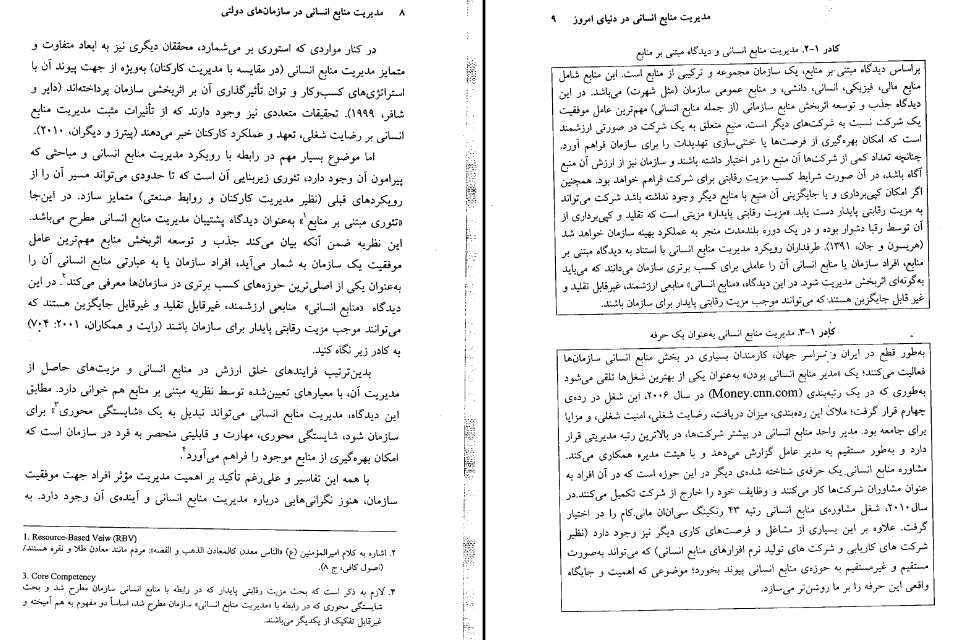 ۸ مدیریت منابع انسانی در سازمان‌های دولتی
در کنار مواردی که استوری بر می‌شمارد، محققان دیگری نیز به ابعاد متفاوت و
متمایز مدیریت منابع انسانی (در مقایسه با مدیریت کارکنان) به‌ویژه از جهت پیوند آن با
استراتژی‌های کسب‌وکار و توان تأثیرگذاری آن بر اثربخشی سازمان پرداخته‌اند (دایر و
شافر، ۱۹۹۹). تحقیقات متعددی نیز وجود دارند که از تأثیرات مثبت مدیریت منابع
انسانی بر رضایت شغلی، تعهد و عملکرد کارکنان خبر می‌دهند (پیترز و دیگران، ۲۰۱۰).
اما موضوع بسیار مهم در رابطه با رویکرد مدیریت منابع انسانی و مباحثی که
پیرامون آن وجود دارد، تئوری زیربنایی آن است که تا حدودی می‌تواند مسیر آن را از
رویکردهای قبلی (نظیر مدیریت کارکنان و روابط صنعتی) متمایز سازد. در این‌جا
«تئوری مبتنی بر منابع۱» به‌عنوان دیدگاه پشتیبان مدیریت منابع انسانی مطرح می‌باشد.
این نظریه ضمن آنکه بیان می‌کند جذب و توسعه اثربخش منابع مهم‌ترین عامل
موفقیت یک سازمان به شمار می‌آید، افراد سازمان یا به عبارتی منابع انسانی آن را
به‌عنوان یکی از اصلی‌ترین حوزه‌های کسب برتری در سازمان‌ها معرفی می‌کند۲. در این
دیدگاه «منابع انسانی» منابعی ارزشمند، غیرقابل تقلید و غیرقابل جایگزین هستند که
می‌توانند موجب مزیت رقابتی پایدار برای سازمان باشند (رایت و همکاران، ۲۰۰۱: ۷۰۴)
به کادر زیر نگاه کنید.
بدین‌ترتیب فرایندهای خلق ارزش در منابع انسانی و مزیت‌های حاصل از
مدیریت آن، با معیارهای تعیین‌شده توسط نظریه مبتنی بر منابع هم خوانی دارد. مطابق
این دیدگاه، مدیریت منابع انسانی می‌تواند تبدیل به یک «شایستگی محوری۳» برای
سازمان شود، شایستگی محوری، مهارت و قابلیتی منحصر به فرد در سازمان است که
امکان بهره‌گیری از منابع موجود را فراهم می‌آورد۴.
با همه این تفاسیر و علی‌رغم تأکید بر اهمیت مدیریت مؤثر افراد جهت موفقیت
سازمان، هنوز نگرانی‌هایی درباره مدیریت منابع انسانی و آینده‌ی آن وجود دارد. به
1. Resource-Based Veiw (RBV)
۲. اشاره به کلام امیرالمؤمنین (ع) «الناس معدن کالمعادن الذهب و الفضه»: مردم مانند معادن طلا و نقره هستند/
(اصول کافی، ج ۸).
3. Core Competency
۴. لازم به ذکر است که بحث مزیت رقابتی پایدار که در رابطه با منابع انسانی سازمان مطرح شد و بحث
شایستگی محوری که در رابطه با «مدیریت منابع انسانی» سازمان مطرح شد، اساساً دو مفهوم به هم آمیخته و
غیرقابل تفکیک از یکدیگر می‌باشند.
مدیریت منابع انسانی در دنیای امروز ۹
کادر ۱-۲. مدیریت منابع انسانی و دیدگاه مبتنی بر منابع
براساس دیدگاه مبتنی بر منابع، یک سازمان مجموعه و ترکیبی از منابع است. این منابع شامل
منابع مالی، فیزیکی، انسانی، دانشی، و منابع عمومی سازمان (مثل شهرت) می‌باشد. در این
دیدگاه جذب و توسعه اثربخش منابع سازمانی (از جمله منابع انسانی) مهم‌ترین عامل موفقیت
یک شرکت نسبت به شرکت‌های دیگر است. منبع متعلق به یک شرکت در صورتی ارزشمند
است که امکان بهره‌گیری از فرصت‌ها یا خنثی‌سازی تهدیدات را برای سازمان فراهم آورد.
چنانچه تعداد کمی از شرکت‌ها آن منبع را در اختیار داشته باشند و سازمان نیز از ارزش آن منبع
آگاه باشد، در آن صورت شرایط کسب مزیت رقابتی برای شرکت فراهم خواهد بود. همچنین
اگر امکان کپی‌برداری و یا جایگزینی آن منبع با منابع دیگر وجود نداشته باشد شرکت می‌تواند
به مزیت رقابتی پایدار دست یابد. «مزیت رقابتی پایدار» مزیتی است که تقلید و کپی‌برداری از
آن توسط رقبا دشوار بوده و در یک دوره بلندمدت منجر به عملکرد بهینه سازمان خواهد شد
(هریسون و جان، ۱۳۹۱). طرفداران رویکرد مدیریت منابع انسانی با استناد به دیدگاه مبتنی بر
منابع، افراد سازمان یا منابع انسانی آن را عاملی برای کسب برتری سازمان می‌دانند که می‌باید
به‌گونه‌ای اثربخش مدیریت شود. در این دیدگاه، «منابع انسانی» منابعی ارزشمند، غیرقابل تقلید و
غیر قابل جایگزین هستند که می‌توانند موجب مزیت رقابتی پایدار برای سازمان باشند.
کادر ۱-۳. مدیریت منابع انسانی به‌عنوان یک حرفه
به‌طور قطع در ایران و سراسر جهان، کارمندان بسیاری در بخش منابع انسانی سازمان‌ها
فعالیت می‌کنند؛ یک «مدیر منابع انسانی بودن» به‌عنوان یکی از بهترین شغل‌ها تلقی می‌شود
به‌طوری که در یک رتبه‌بندی (Money.cnn.com) در سال ۲۰۰۶، این شغل در رده‌ی
چهارم قرار گرفت؛ ملاک این رده‌بندی، میزان دریافت، رضایت شغلی، امنیت شغلی، و مزایا
برای جامعه بود. مدیر واحد منابع انسانی در بیشتر شرکت‌ها، در بالاترین رتبه مدیریتی قرار
دارد و به‌طور مستقیم به مدیر عامل گزارش می‌دهد و با هیئت مدیره همکاری می‌کند.
مشاوره منابع انسانی یک حرفه‌ی شناخته شده‌ی دیگر در این حوزه است که در آن افراد به
عنوان مشاوران شرکت‌ها کار می‌کنند و وظایف خود را خارج از شرکت تکمیل می‌کنند.در
سال۲۰۱۰، شغل مشاوره‌ی منابع انسانی رتبه ۴۳ رنکینگ سی‌ان‌ان مانی.کام را در اختیار
گرفت. علاوه بر این بسیاری از مشاغل و فرصت‌های کاری دیگر نیز وجود دارد (نظیر
شرکت های کاریابی و شرکت های تولید نرم افزارهای منابع انسانی) که می‌تواند به‌صورت
مستقیم و غیرمستقیم به حوزه‌ی منابع انسانی پیوند بخورد؛ موضوعی که اهمیت و جایگاه
واقعی این حرفه را بر ما روشن‌تر می‌سازد.